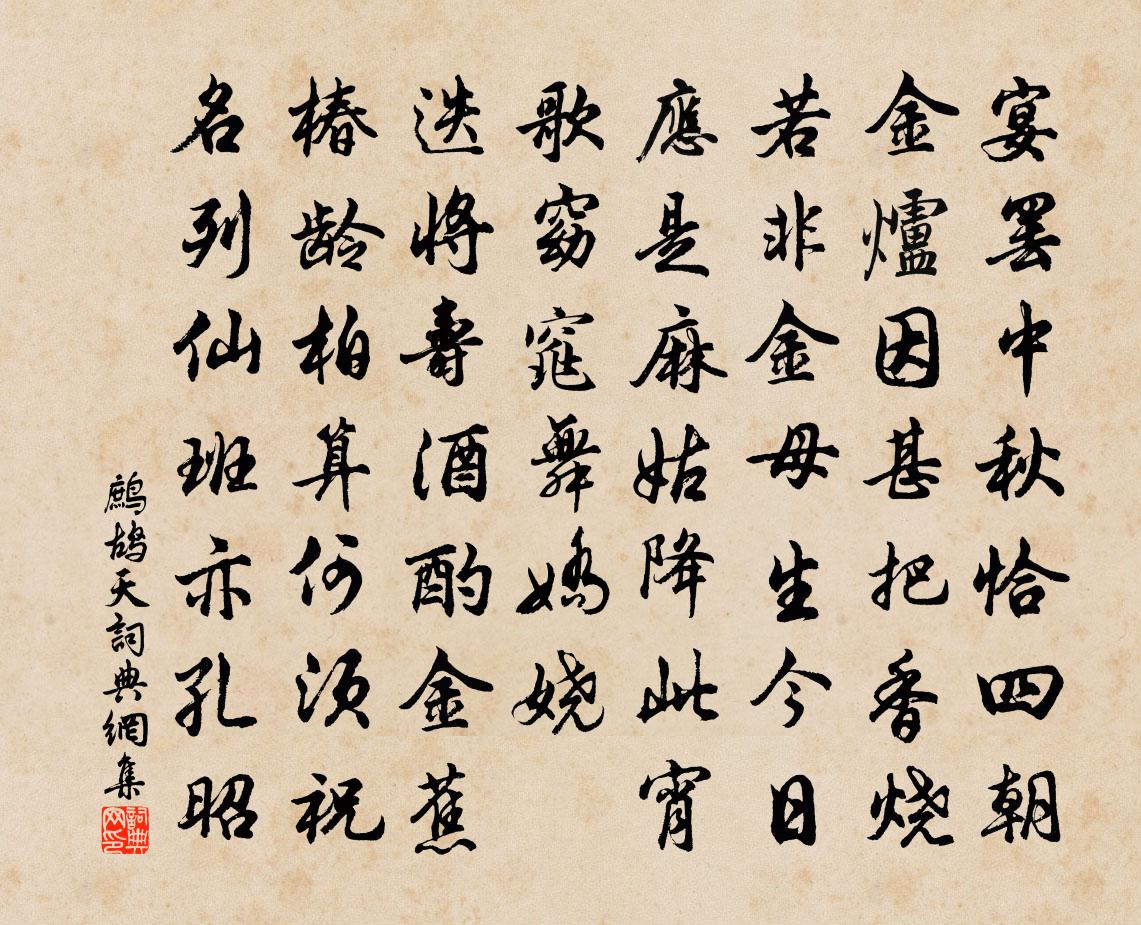 宴罢中秋恰四朝
金爐因甚把香烧
若非金母生今日
應是麻姑降此宵
歌窈窕舞嬌娆
迭將壽酒酌金蕉
椿龄柏算何须祝
名列仙班亦孔昭
鷓鴣天詞典網集
詞典网印